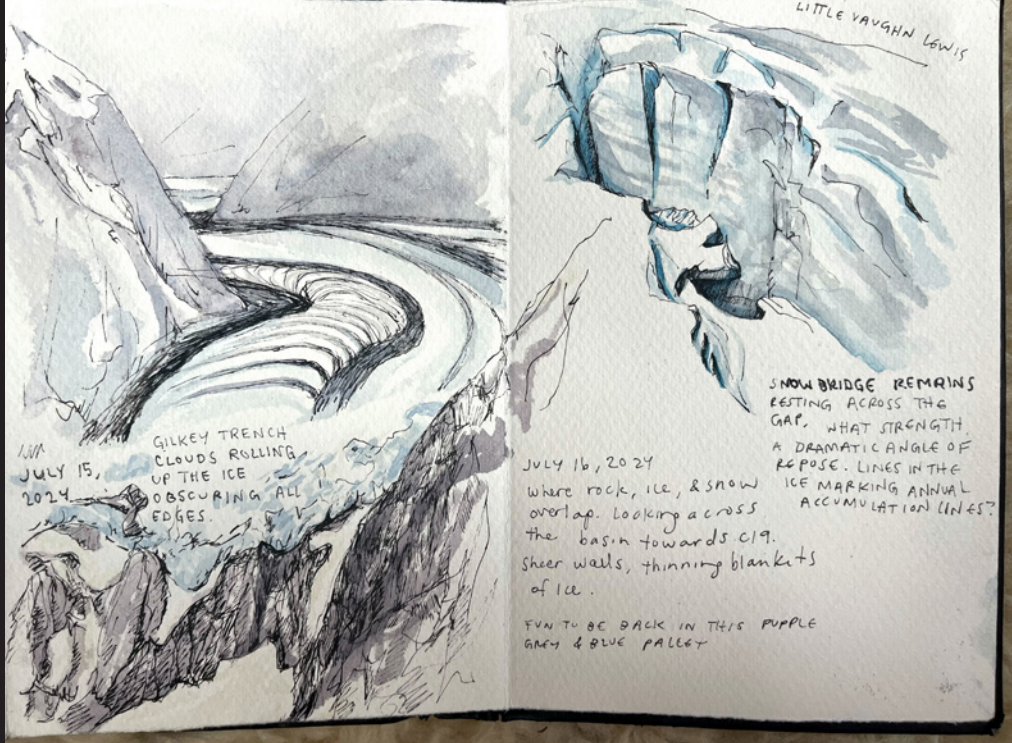 LITTLE VAUGHN LEWIS
JULY 15,
2024
GILKEY TRENCH
CLOUDS ROLLING
UP THE ICE
OBSCURING ALL
EDGES.
SNOW BRIDGE REMAINS
RESTING ACROSS THE
GAP. WHAT STRENGTH.
A DRAMATIC ANGLE OF
REPOSE. LINES IN THE
ICE MARKING ANNUAL
ACCUMULATION LINES?
JULY 16, 2024
where rock, ice, & snow
overlap. Looking across
the basin towards C19.
sheer walls, thinning blankets
of ice.
FUN TO BE BACK IN THIS PUPPLE
GREY & BLUE PALLEY